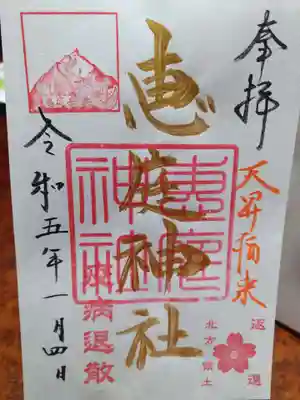 奉拝
北方領土
返還
恵庭神社
惠庭
神社
病退散
令和五年一月四日